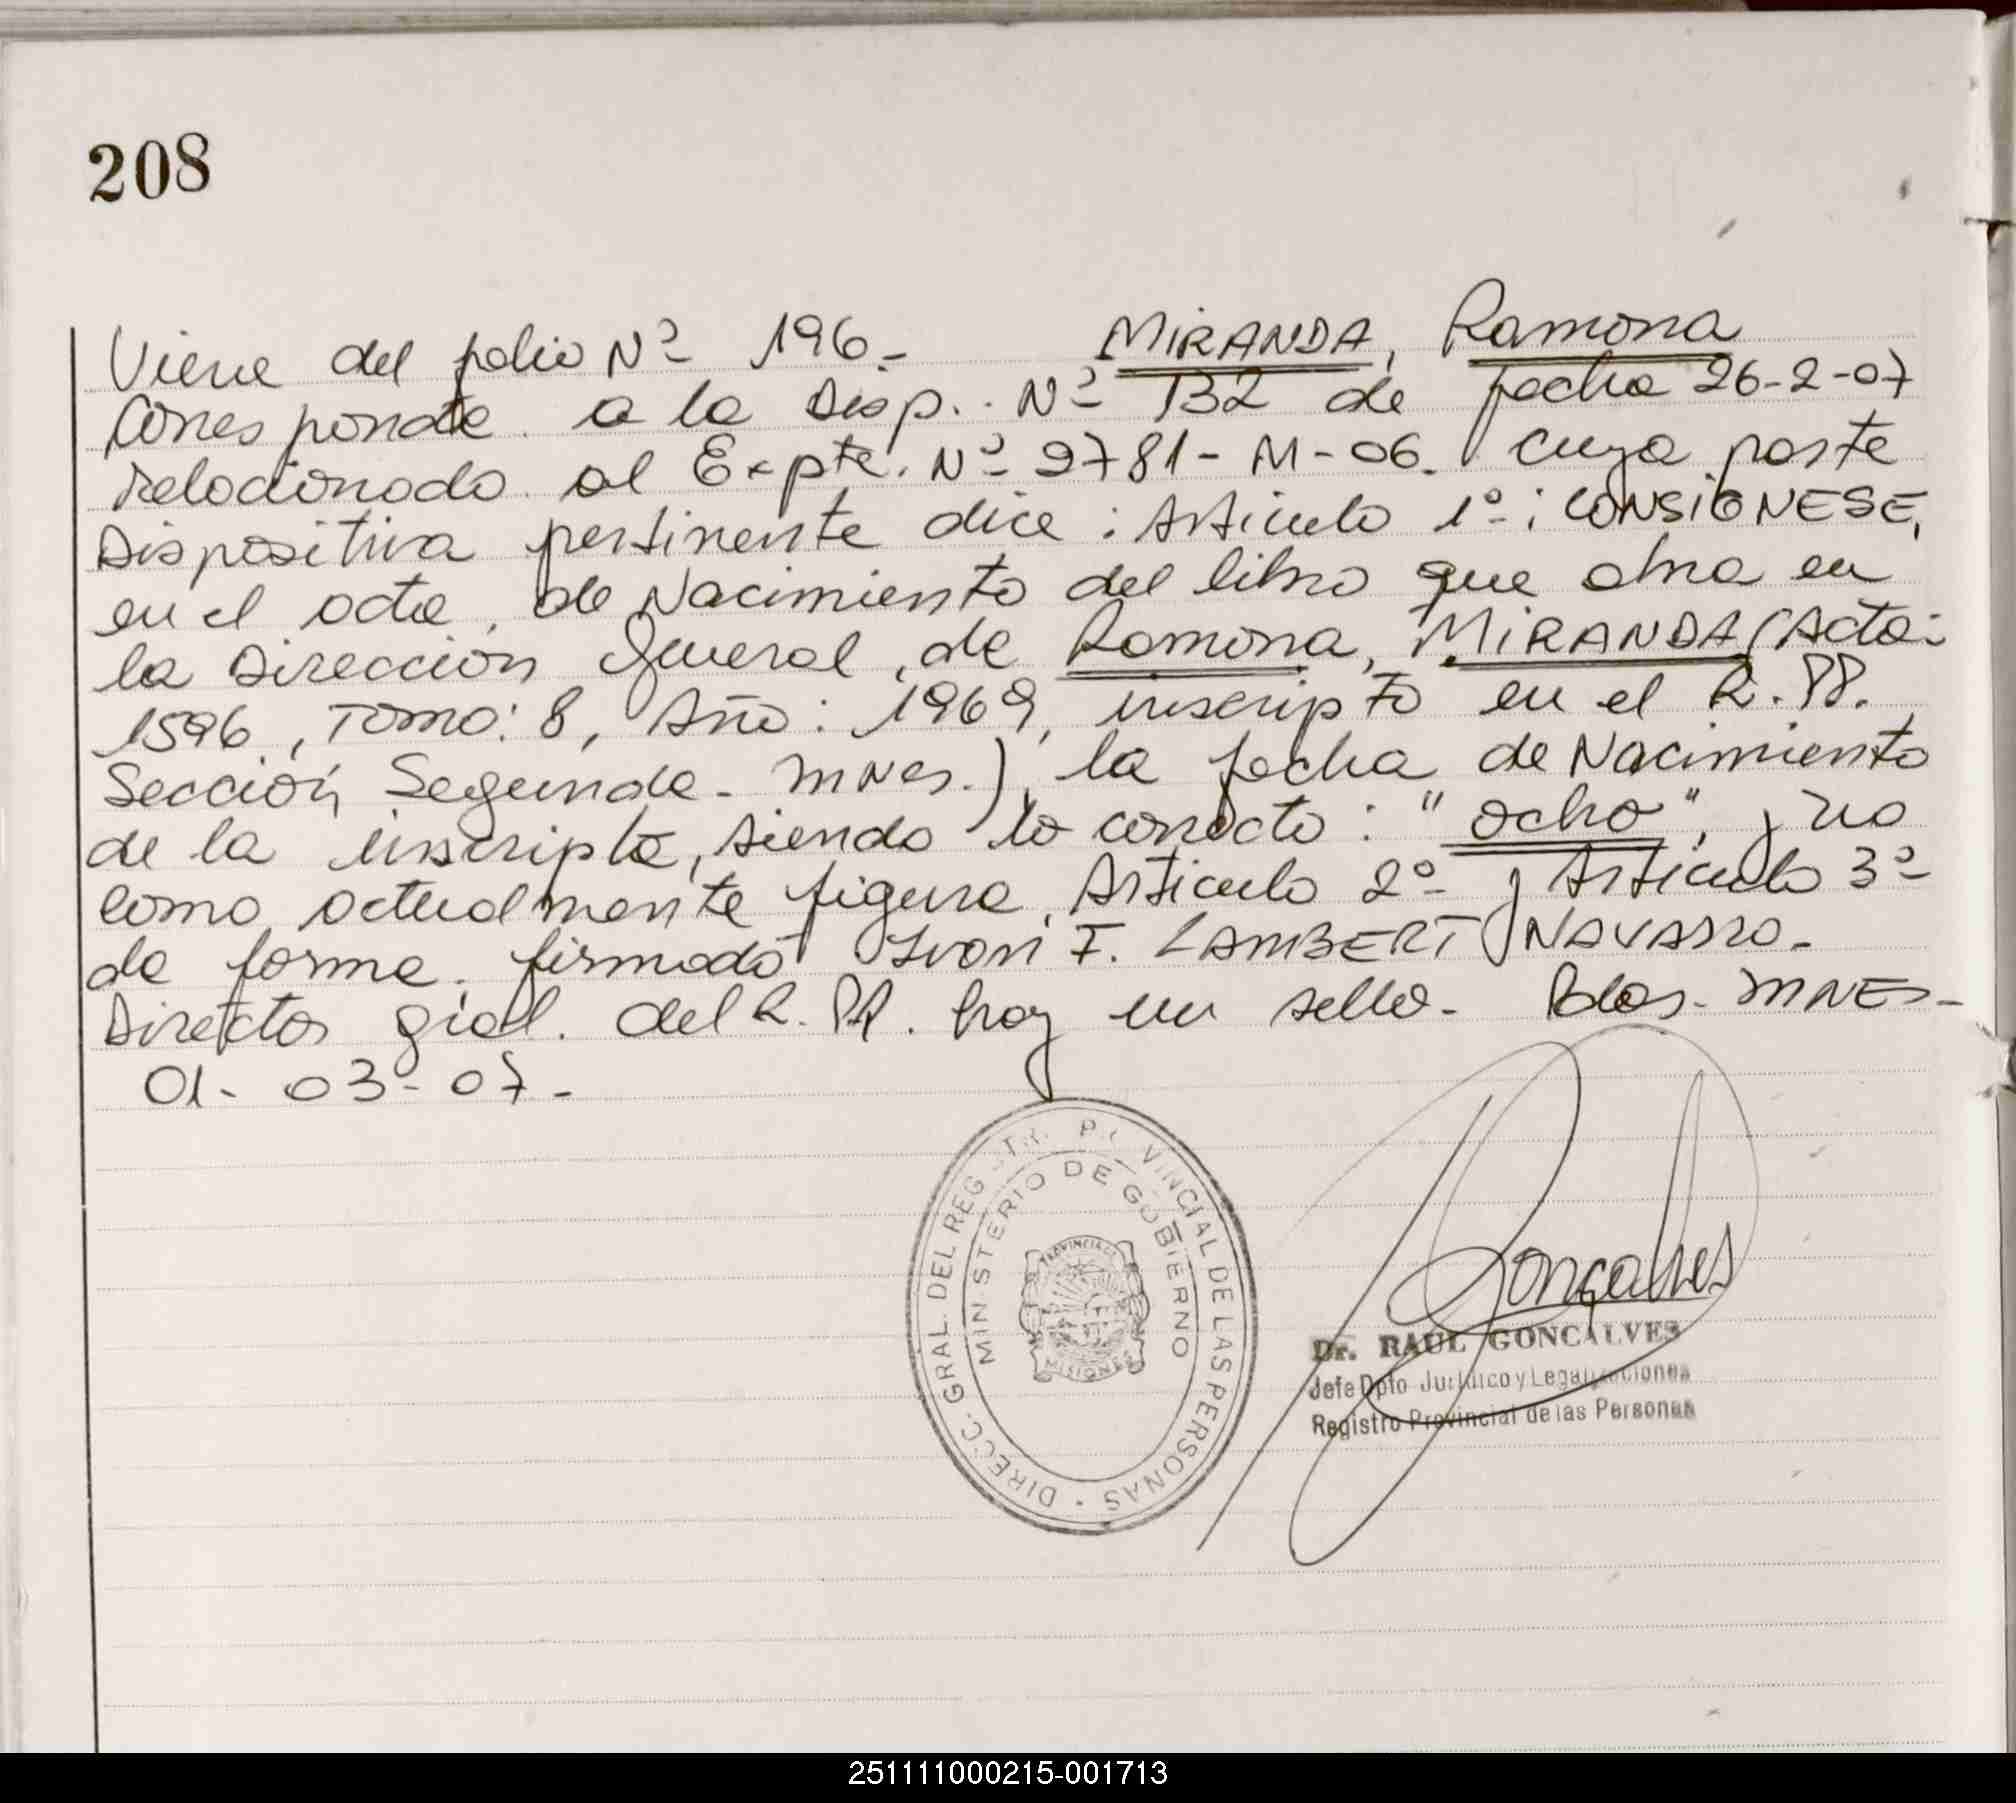 208
Viene del folio Nº 196- MIRANDA, Ramona
Corresponde a la Disp. Nº 132 de fecha 26-2-07
relacionado al Expte. Nº 9781-M-06. cuya parte
Dispositiva pertinente dice: Artículo 1º: CONSIGNESE,
en el acta, de Nacimiento del libro que obra en
la Dirección General, de Ramona, MIRANDA (Acta:
1596, Tomo: 8, Año: 1969, inscripto en el R.PP.
Sección Segunda - MNES.), la fecha de Nacimiento
de la inscripta, siendo lo correcto: "ocho", y no
como actualmente figura. Artículo 2º y Artículo 3º
de forma. firmado Ivan F. LAMBERT NAVARRO.
Director gral. del R.PP. hay un sello- Pdas. MNES-
01-03-07-
DIRECC. GRAL. DEL REGISTRO PROVINCIAL DE LAS PERSONAS
MINISTERIO DE GOBIERNO
PROVINCIA DE
MISIONES
Gonçalves
Dr. RAUL GONCALVES
Jefe Dpto Jurídico y Legalizaciones
Registro Provincial de las Personas
251111000215-001713